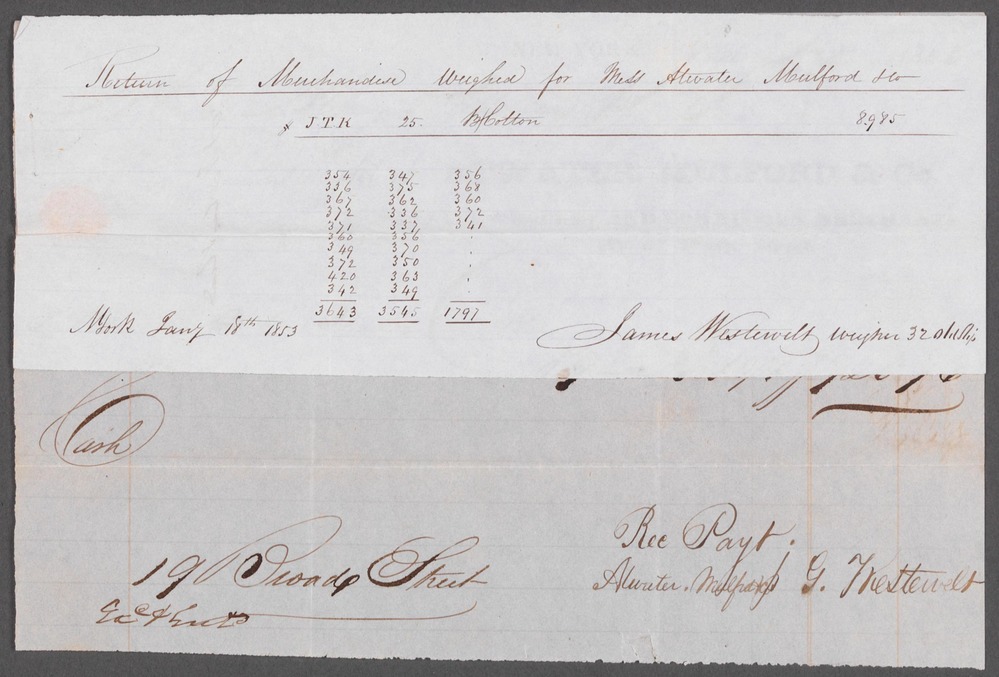 Return of Merchandise Weighed for Mess Atwater Mulford & Co
J.T.K 25. B/Cotton 8.985
354 347 356
336 375 368
367 362 360
372 336 372
371 337 341
360 356
349 370
372 350
420 363
342 349
3643 3545 1797
N York Jany 18th 1853
James Westervelt weigher 32 old Slip
Cash
Rec Payt.
19 Broad Street
Atwater. Mulford
G. Westervelt